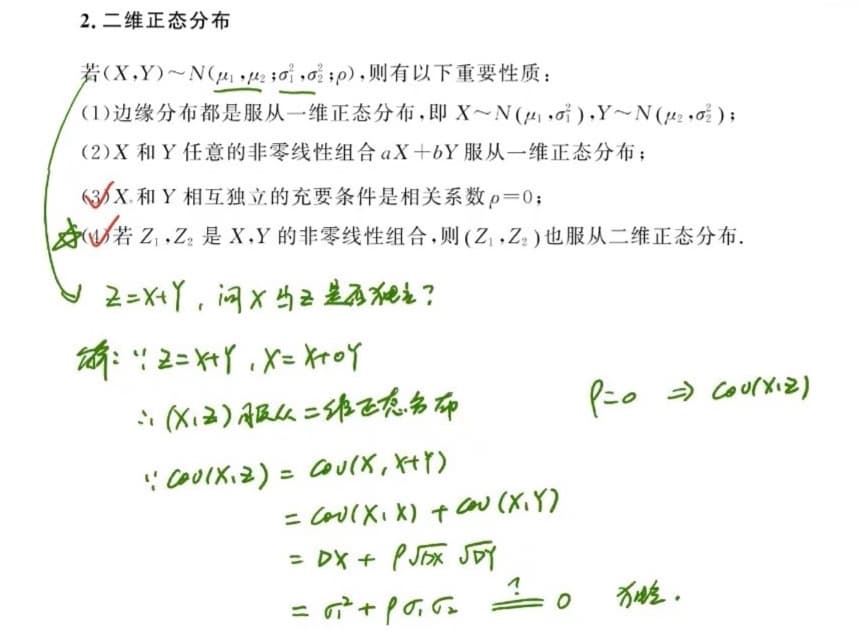 2. 二维正态分布
若(X,Y)~N(μ₁,μ₂;σ₁²,σ₂²;ρ),则有以下重要性质:
(1)边缘分布都是服从一维正态分布,即 X~N(μ₁,σ₁²),Y~N(μ₂,σ₂²);
(2)X 和 Y 任意的非零线性组合 aX+bY 服从一维正态分布;
(3)X 和 Y 相互独立的充要条件是相关系数 ρ=0;
(4)若 Z₁,Z₂ 是 X,Y 的非零线性组合,则(Z₁,Z₂)也服从二维正态分布.
Z=X+Y, 问X与Z是否独立?
解: ∵ Z=X+Y, X=X+0Y
∴ (X,Z) 服从二维正态分布
ρ=0 ⇒ cov(X,Z)
∵ cov(X,Z) = cov(X, X+Y)
= cov(X,X) + cov(X,Y)
= DX + ρ√DX √DY
= σ₁² + ρσ₁σ₂ =?= 0 独立.